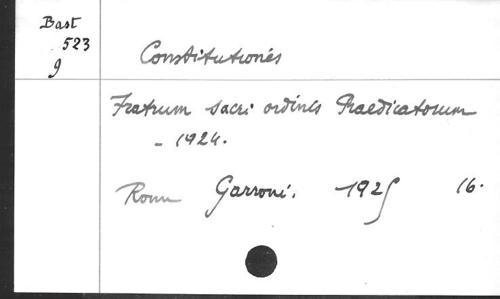 Bast
523
g
Constitutiones
Fratrum sacri ordinis Praedicatorum
- 1924.
Romae Garroni. 1925 16.